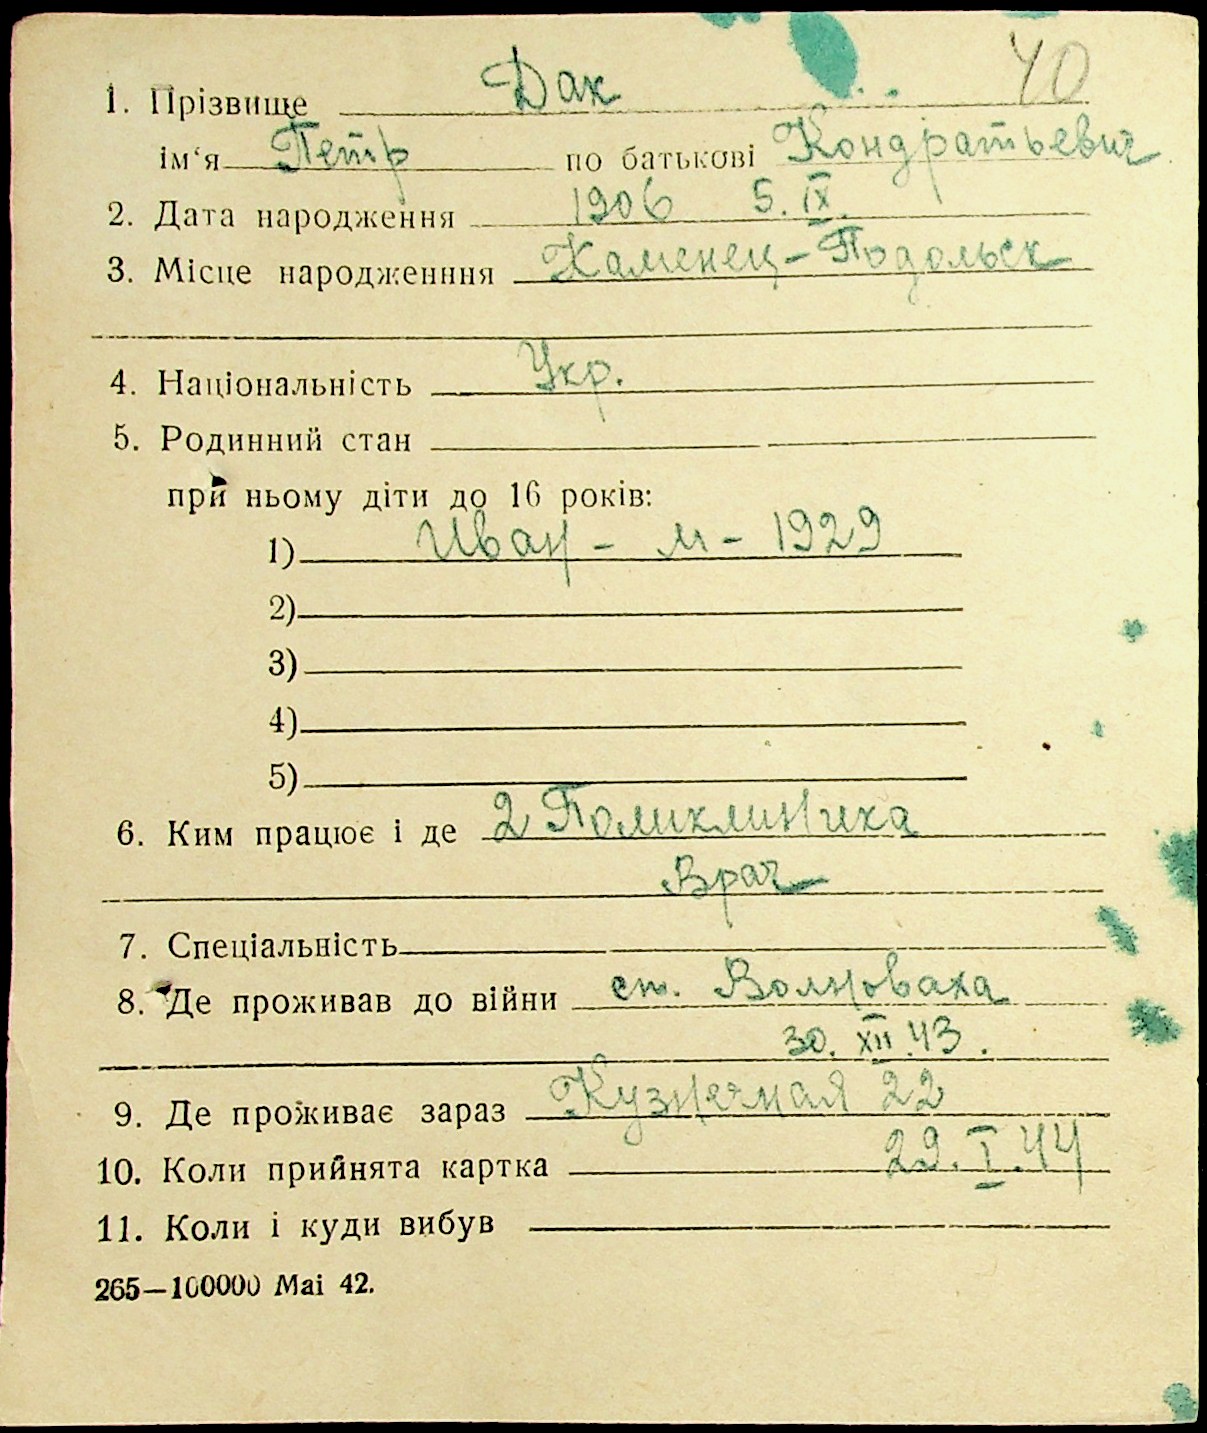 40
1. Прізвище Дак
ім‘я Петр по батькові Кондратьевич
2. Дата народження 1906 5. IX.
3. Місце народженння Каменец-Подольск
4. Національність Укр.
5. Родинний стан
при ньому діти до 16 років:
1) Иван - м - 1929
2)
3)
4)
5)
6. Ким працює і де 2 Поликлиника
Врач
7. Спеціальність
8. Де проживав до війни ст. Волноваха
30. XII.43.
9. Де проживає зараз Кузнечная 22
10. Коли прийнята картка 29. I.44
11. Коли і куди вибув
265—100000 Mai 42.